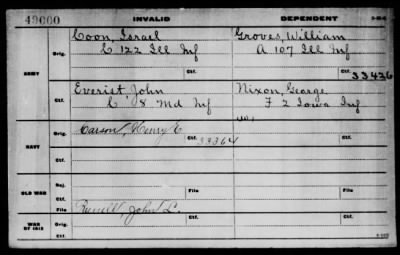 49000 INVALID DEPENDENT
Coon, Israel Groves, William
Orig. C 122 Ill Inf A 107 Ill Inf
ARMY
Ctf. Ctf. 33426
Everist, John Nixon, George
Orig. C 8 Md Inf F 2 Iowa Inf
Ctf.
Orig. Carson, Henry E.
NAVY
Ctf. 33364
Rej.
OLD WAR Ctf. File
File Russell, John L.
WAR OF 1812 Orig.
Ctf.